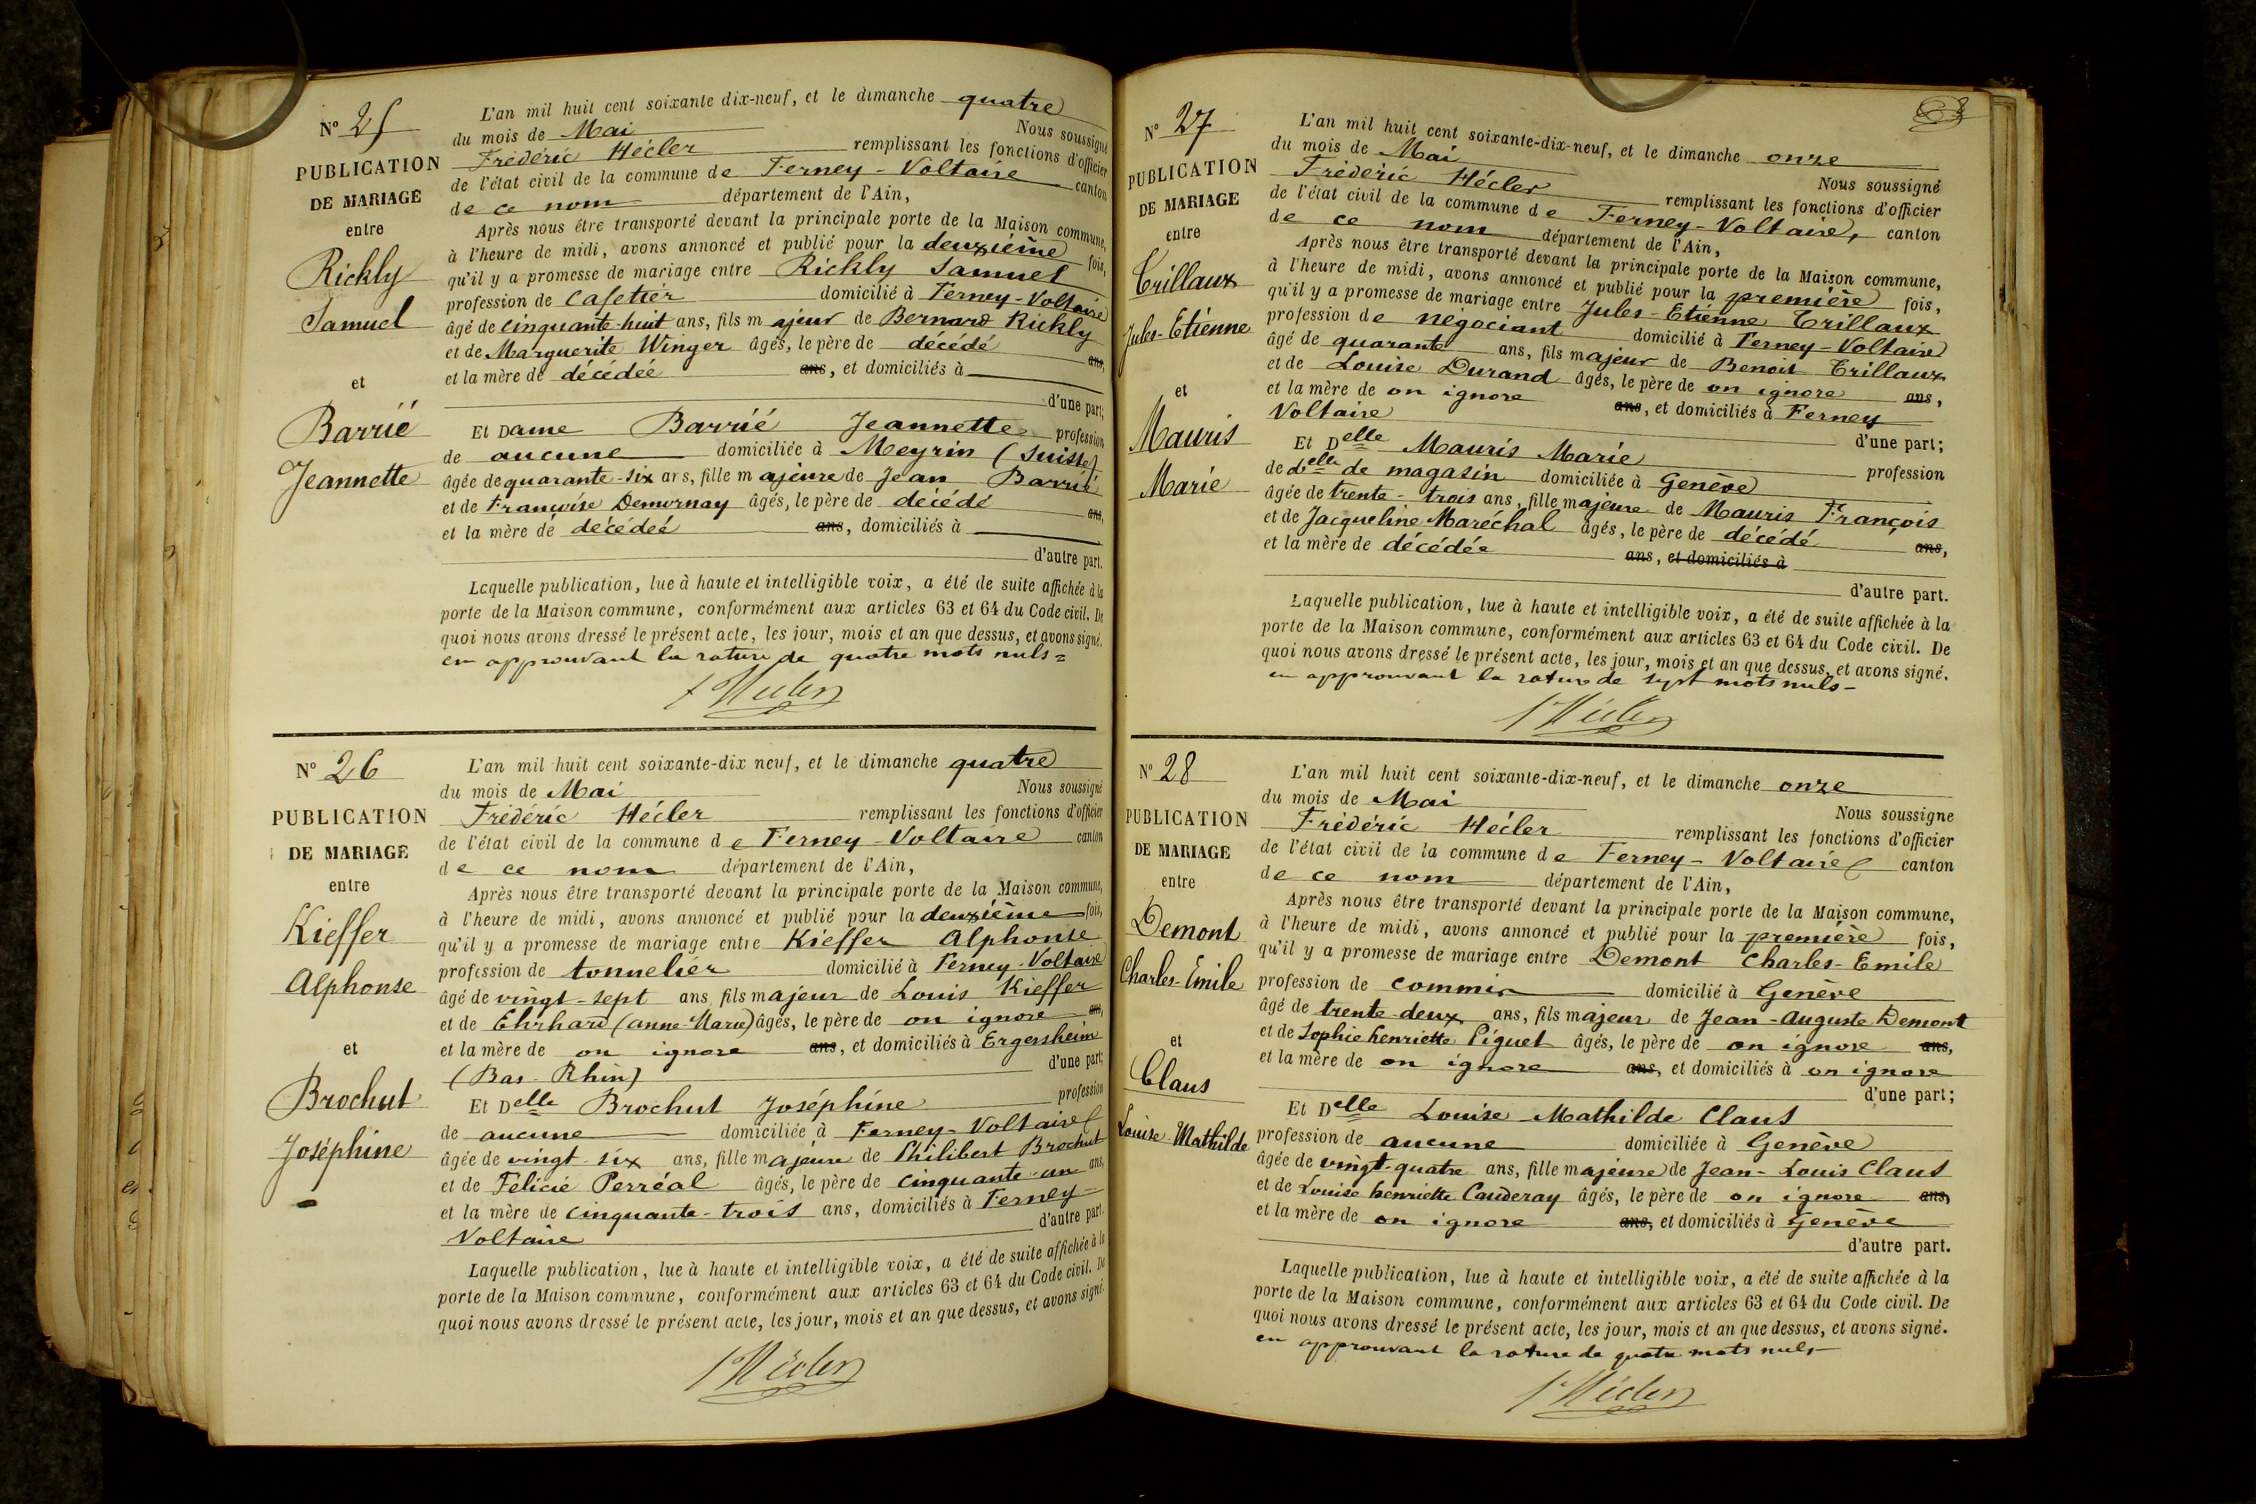 N° 25
PUBLICATION
DE MARIAGE
entre
Rickly
Samuel
et
Barrié
Jeannette
L'an mil huit cent soixante dix-neuf, et le dimanche quatre
du mois de Mai Nous soussigné
Frédéric Hécler remplissant les fonctions d'officier
de l'état civil de la commune de Ferney-Voltaire canton
de ce nom département de l'Ain,
Après nous être transporté devant la principale porte de la Maison commune,
à l'heure de midi, avons annoncé et publié pour la deuxième fois,
qu'il y a promesse de mariage entre Rickly Samuel
profession de cafetier domicilié à Ferney-Voltaire
âgé de cinquante-huit ans, fils majeur de Bernard Rickly
et de Marguerite Winger âgés, le père de décédé ans,
et la mère de décédée ans, et domiciliés à
d'une part;
Et Dame Barrié Jeannette profession
de aucune domiciliée à Meyrin (Suisse)
âgée de quarante-six ans, fille majeure de Jean Barrié
et de Françoise Demornay âgés, le père de décédé ans,
et la mère de décédée ans, domiciliés à
d'autre part.
Laquelle publication, lue à haute et intelligible voix, a été de suite affichée à la
porte de la Maison commune, conformément aux articles 63 et 64 du Code civil. De
quoi nous avons dressé le présent acte, les jour, mois et an que dessus, et avons signé.
en approuvant la rature de quatre mots nuls=
f Hécler
N° 26
PUBLICATION
DE MARIAGE
entre
Kieffer
Alphonse
et
Brochut
Joséphine
L'an mil huit cent soixante-dix neuf, et le dimanche quatre
du mois de Mai Nous soussigné
Frédéric Hécler remplissant les fonctions d'officier
de l'état civil de la commune de Ferney-Voltaire canton
de ce nom département de l'Ain,
Après nous être transporté devant la principale porte de la Maison commune,
à l'heure de midi, avons annoncé et publié pour la deuxième fois,
qu'il y a promesse de mariage entre Kieffer Alphonse
profession de tonnelier domicilié à Ferney-Voltaire
âgé de vingt-sept ans, fils majeur de Louis Kieffer
et de Ehrhard (anne-Marie) âgés, le père de on ignore ans,
et la mère de on ignore ans, et domiciliés à Ergersheim
(Bas-Rhin) d'une part;
Et Delle Brochut Joséphine profession
de aucune domiciliée à Ferney-Voltaire
âgée de vingt-six ans, fille majeure de Philibert Brochut
et de Félicie Perréal âgés, le père de cinquante-un ans,
et la mère de cinquante-trois ans, domiciliés à Ferney-
Voltaire d'autre part.
Laquelle publication, lue à haute et intelligible voix, a été de suite affichée à la
porte de la Maison commune, conformément aux articles 63 et 64 du Code civil. De
quoi nous avons dressé le présent acte, les jour, mois et an que dessus, et avons signé.
f Hécler
N° 27
PUBLICATION
DE MARIAGE
entre
Trillaux
Jules-Etienne
et
Mauris
Marie
L'an mil huit cent soixante-dix-neuf, et le dimanche onze
du mois de Mai Nous soussigné
Frédéric Hécler remplissant les fonctions d'officier
de l'état civil de la commune de Ferney-Voltaire, canton
de ce nom département de l'Ain,
Après nous être transporté devant la principale porte de la Maison commune,
à l'heure de midi, avons annoncé et publié pour la première fois,
qu'il y a promesse de mariage entre Jules-Etienne Trillaux
profession de négociant domicilié à Ferney-Voltaire
âgé de quarante ans, fils majeur de Benoit Trillaux
et de Louise Durand âgés, le père de on ignore ans,
et la mère de on ignore ans, et domiciliés à Ferney
Voltaire d'une part;
Et Delle Mauris Marie profession
de delle de magasin domiciliée à Genève
âgée de trente-trois ans, fille majeure de Mauris François
et de Jacqueline Maréchal âgés, le père de décédé ans,
et la mère de décédée ans, et domiciliés à
d'autre part.
Laquelle publication, lue à haute et intelligible voix, a été de suite affichée à la
porte de la Maison commune, conformément aux articles 63 et 64 du Code civil. De
quoi nous avons dressé le présent acte, les jour, mois et an que dessus, et avons signé.
en approuvant la rature de sept mots nuls-
f Hécler
N° 28
PUBLICATION
DE MARIAGE
entre
Demont
Charles-Emile
et
Claus
Louise-Mathilde
L'an mil huit cent soixante-dix-neuf, et le dimanche onze
du mois de Mai Nous soussigné
Frédéric Hécler remplissant les fonctions d'officier
de l'état civil de la commune de Ferney-Voltaire canton
de ce nom département de l'Ain,
Après nous être transporté devant la principale porte de la Maison commune,
à l'heure de midi, avons annoncé et publié pour la première fois,
qu'il y a promesse de mariage entre Demont Charles-Emile
profession de commis domicilié à Genève
âgé de trente-deux ans, fils majeur de Jean-Auguste Demont
et de Sophie henriette Piguet âgés, le père de on ignore ans,
et la mère de on ignore ans, et domiciliés à on ignore
d'une part;
Et Delle Louise-Mathilde Claus
profession de aucune domiciliée à Genève
âgée de vingt-quatre ans, fille majeure de Jean-Louis Claus
et de Louise henriette Cauderay âgés, le père de on ignore ans,
et la mère de on ignore ans, et domiciliés à Genève
d'autre part.
Laquelle publication, lue à haute et intelligible voix, a été de suite affichée à la
porte de la Maison commune, conformément aux articles 63 et 64 du Code civil. De
quoi nous avons dressé le présent acte, les jour, mois et an que dessus, et avons signé.
en approuvant la rature de quatre mots nuls-
f Hécler